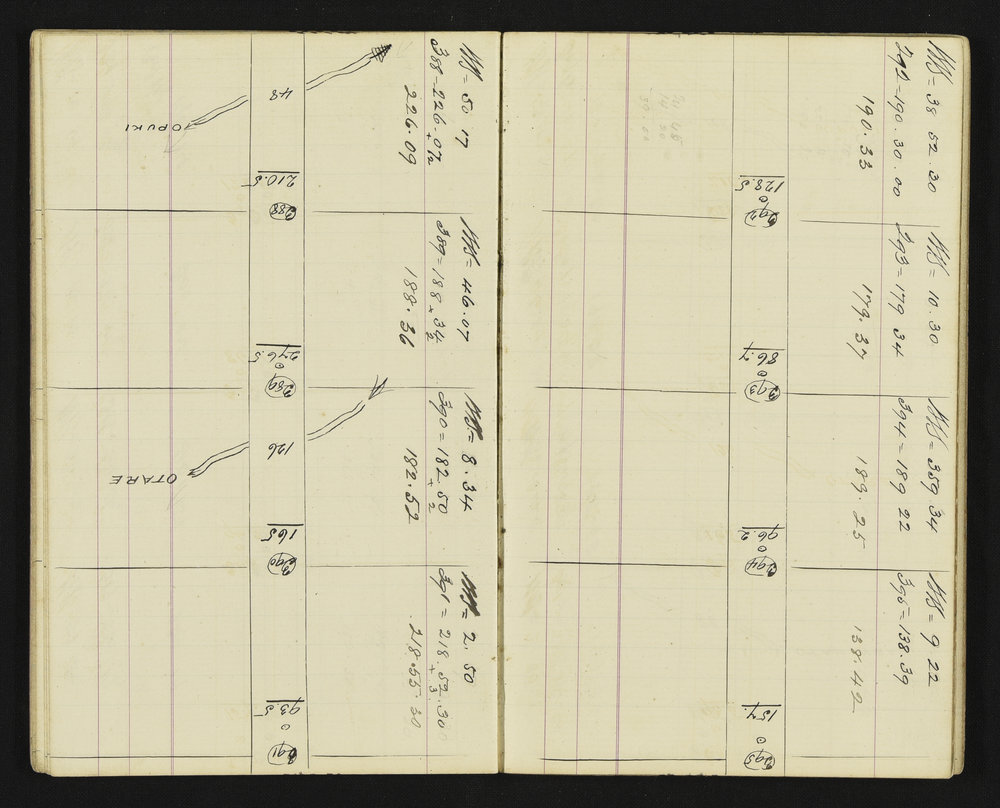 = 50 17
388 - 226.07½
226.09
48
OPUKI
210.5
388
= 46.07
389 = 188.34
+ 2
188.36
276.5
0
389
= 8.34
390 = 182.50
+ 2
182.52
126
OTARE
165
390
= 2.50
391 = 218.52.30
+ 3
218.55.30
93.5
0
391
= 38 52.30
392 - 190.30.00
190.33
128.5
0
392
= 10.30
293 = 179 34
179.37
86.7
0
393
= 359 34
394 = 189 22
189.25
96.2
0
394
= 9 22
395 = 138.39
138.42
157.
0
395